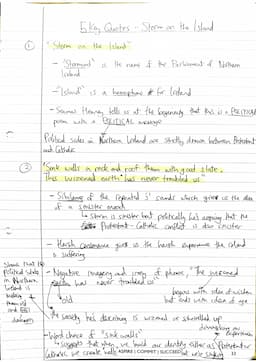 5 Key Quotes - Storm on the Island
① "Storm on the Island"
- "Stormont" is the name of the Parliament of Northern Ireland
- "Island" is a homophone for Ireland
- Seamus Heaney tells us at the beginning that this is a POLITICAL
poem with a POLITICAL message
Political sides in Northern Ireland are strictly drawn between Protestant
and Catholic
② "Sink walls in rock and roof them with good slate.
This wizened earth has never troubled us"
- Sibilance of the repeated 'S' sounds which give us the idea
of a sinister mood
↳ storm is sinister but politically he's arguing that the
Protestant - Catholic conflict is also sinister
- Harsh consonance gives us the harsh experience the island
is suffering
- Negative imagery and irony of phrase, "The wizened
earth has never troubled us"
old
begins with idea of wisdom
but ends with idea of age
the society he's describing is wizened or shrivelled up
- Word choice of "sink walls"
- Suggests that when we build our identity either as Protestant or
Catholic we create walls
Shows that the
political state
in Northern
Ireland is
making
them old
and
damages
ASPIRE | COMMIT | SUCCEED